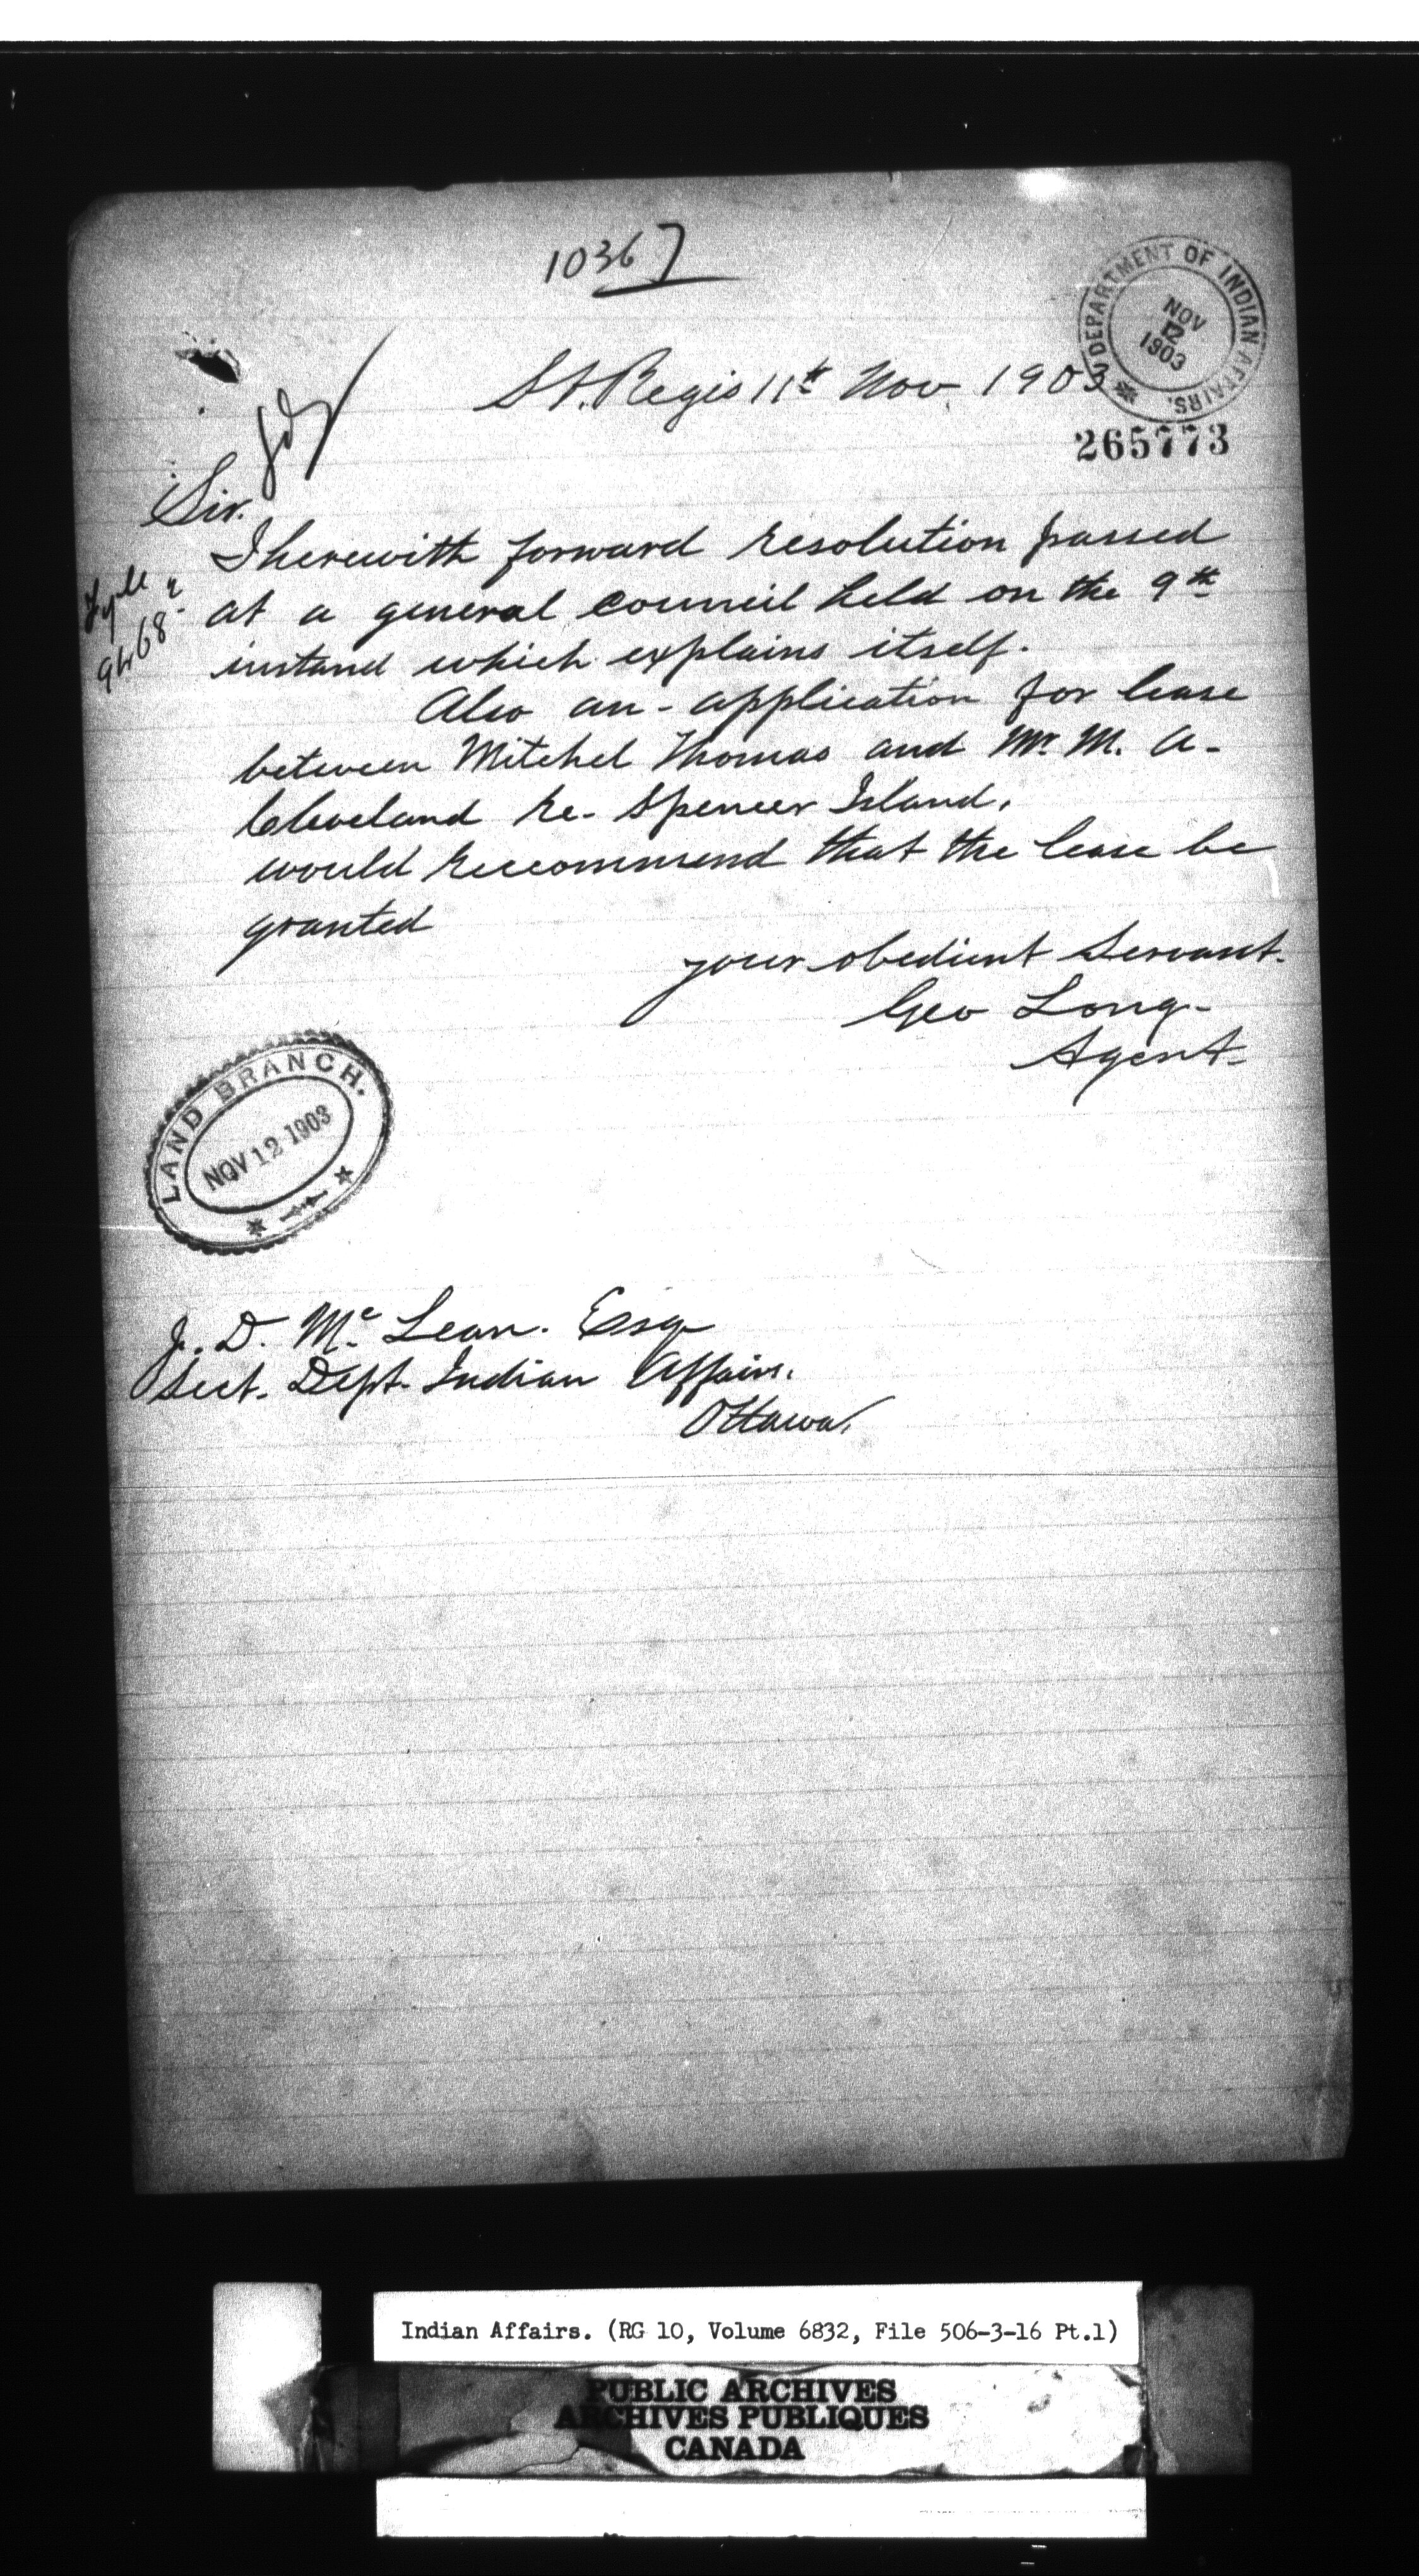 10367
DEPARTMENT OF INDIAN AFFAIRS.
NOV
12
1903
St. Regis 11th Nov 1903
265773
Sir.
I herewith forward resolution passed
at a general council held on the 9th
instand which explains itself.
Also an - application for lease
between Mitchel Thomas and Mr. M. A -
Cleveland re - Spencer Island.
would reccommend that the lease be
granted
your obedient Servant.
Geo Long -
Agent -
LAND BRANCH.
NOV 12 1903
J. D. Mc Lean. Esq
Sect. Dept. Indian Affairs.
Ottawa.
Indian Affairs. (RG 10, Volume 6832, File 506-3-16 Pt.1)
PUBLIC ARCHIVES
ARCHIVES PUBLIQUES
CANADA